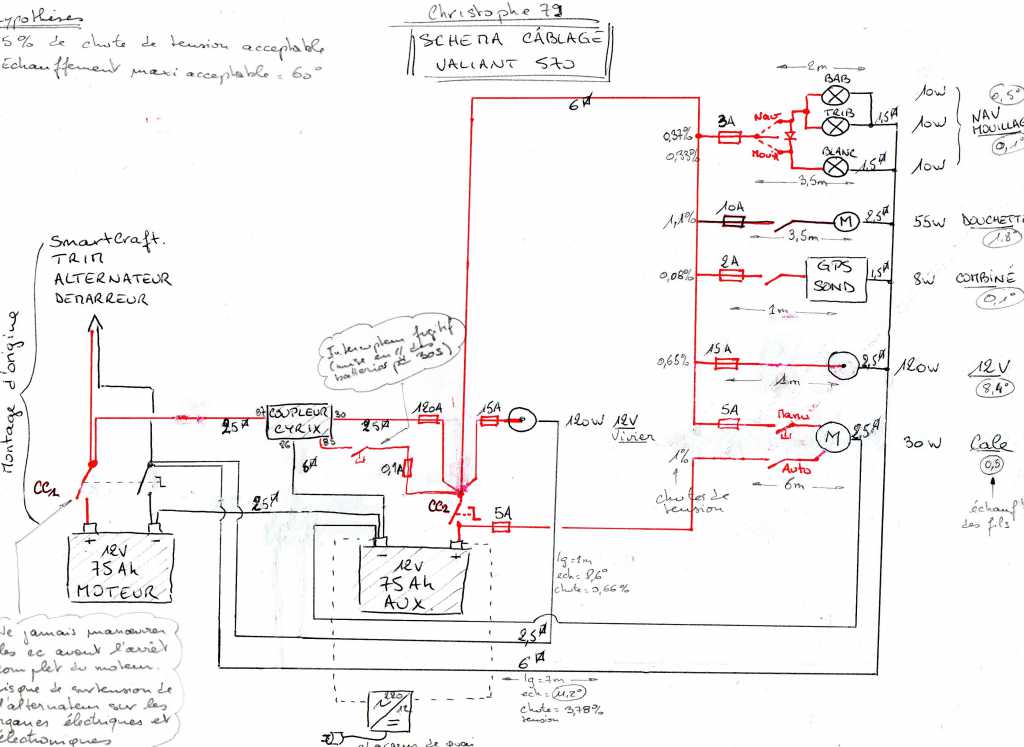 Christophe 79
SCHEMA CÂBLAGE
VALIANT 570
5% de chute de tension acceptable
Echauffement maxi acceptable = 60°
2m
BAB
6
3A
Nav
TRIB
1,5
10W
10W
10W
0,5°
NAV
MOUILLAGE
0,1°
0,37%
0,33%
Moui
BLANC
1,5
3,5m
1,1%
10A
M
2,5
55W
DOUCHETTE
1,8°
3,5m
0,08%
2A
GPS
SOND
1,5
8W
COMBINÉ
0,1°
1m
SmartCraft.
TRIM
ALTERNATEUR
DEMARREUR
Montage d'origine
Interrupteur fugitif
(mise en // des
batteries par 30s)
0,65%
15A
2,5
120W
12V
8,4°
1m
87
COUPLEUR
CYRIX
30
86
85
25
25
120A
15A
120W
12V
Vivier
5A
Manu
M
2,5
30W
Cale
0,5
1%
Auto
6m
chutes de
tension
échauff
des fils
6
0,1A
CC1
CC2
25
5A
+
-
12V
75Ah
MOTEUR
-
+
12V
75Ah
AUX
lg=1m
ech=8,6°
chute=0,66%
2,5
6
lg=7m
ech=11,2°
chute=3,78%
tension
Ne jamais manoeuvrer
les cc avant l'arrêt
complet du moteur.
risque de surtension de
l'alternateur sur les
organes électriques et
électroniques
220
12
chargeur de quai